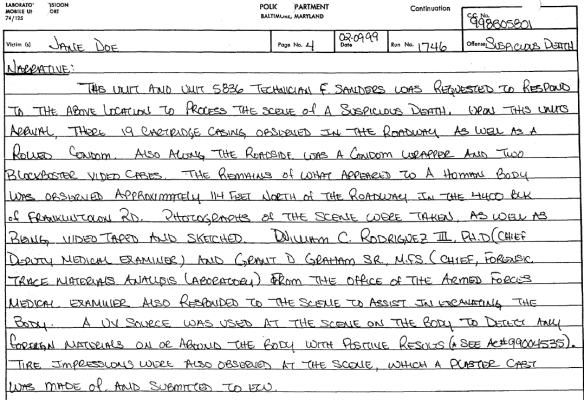 LABORATO
MOBILE U
74/125
POLI PARTMENT
BALTIMORE, MARYLAND
Continuation
C.C. No.
998B05801
Victim (s) JANE DOE
Page No. 4
02-09-99
Date
Run No. 1746
Offense: SUSPICIOUS DEATH
NARRATIVE:
THIS UNIT AND UNIT 5836 TECHNICIAN F. SANDERS WAS REQUESTED TO RESPOND
TO THE ABOVE LOCATION TO PROCESS THE SCENE OF A SUSPICIOUS DEATH. UPON THIS UNITS
ARRIVAL, THERE 19 CARTRIDGE CASING OBSERVED IN THE ROADWAY AS WELL AS A
ROLLED CONDOM. ALSO ALONG THE ROADSIDE WAS A CONDOM WRAPPER AND TWO
BLOCKBOSTER VIDEO CASES. THE REMAINS OF WHAT APPEARED TO A HUMAN BODY
WAS OBSERVED APPROXIMATELY 114 FEET NORTH OF THE ROADWAY IN THE 4400 BLK
OF FRANKLINTOWN RD. PHOTOGRAPHS OF THE SCENE WERE TAKEN, AS WELL AS
BEING VIDEO TAPED AND SKETCHED. WILLIAM C. RODRIGUEZ III, PH.D (CHIEF
DEPUTY MEDICAL EXAMINER) AND GRANT D GRAHAM SR, M.F.S (CHIEF, FORENSIC
TRACE MATERIALS ANALYSIS LABORATORY) FROM THE OFFICE OF THE ARMED FORCES
MEDICAL EXAMINER ALSO RESPONDED TO THE SCENE TO ASSIST IN EXCAVATING THE
BODY. A UV SOURCE WAS USED AT THE SCENE ON THE BODY TO DETECT ANY
FOREIGN MATERIALS ON OR AROUND THE BODY WITH POSITIVE RESULTS (SEE AC#99004535).
TIRE IMPRESSIONS WERE ALSO OBSERVED AT THE SCENE, WHICH A PLASTER CAST
WAS MADE OF. AND SUBMITTED TO ECU.